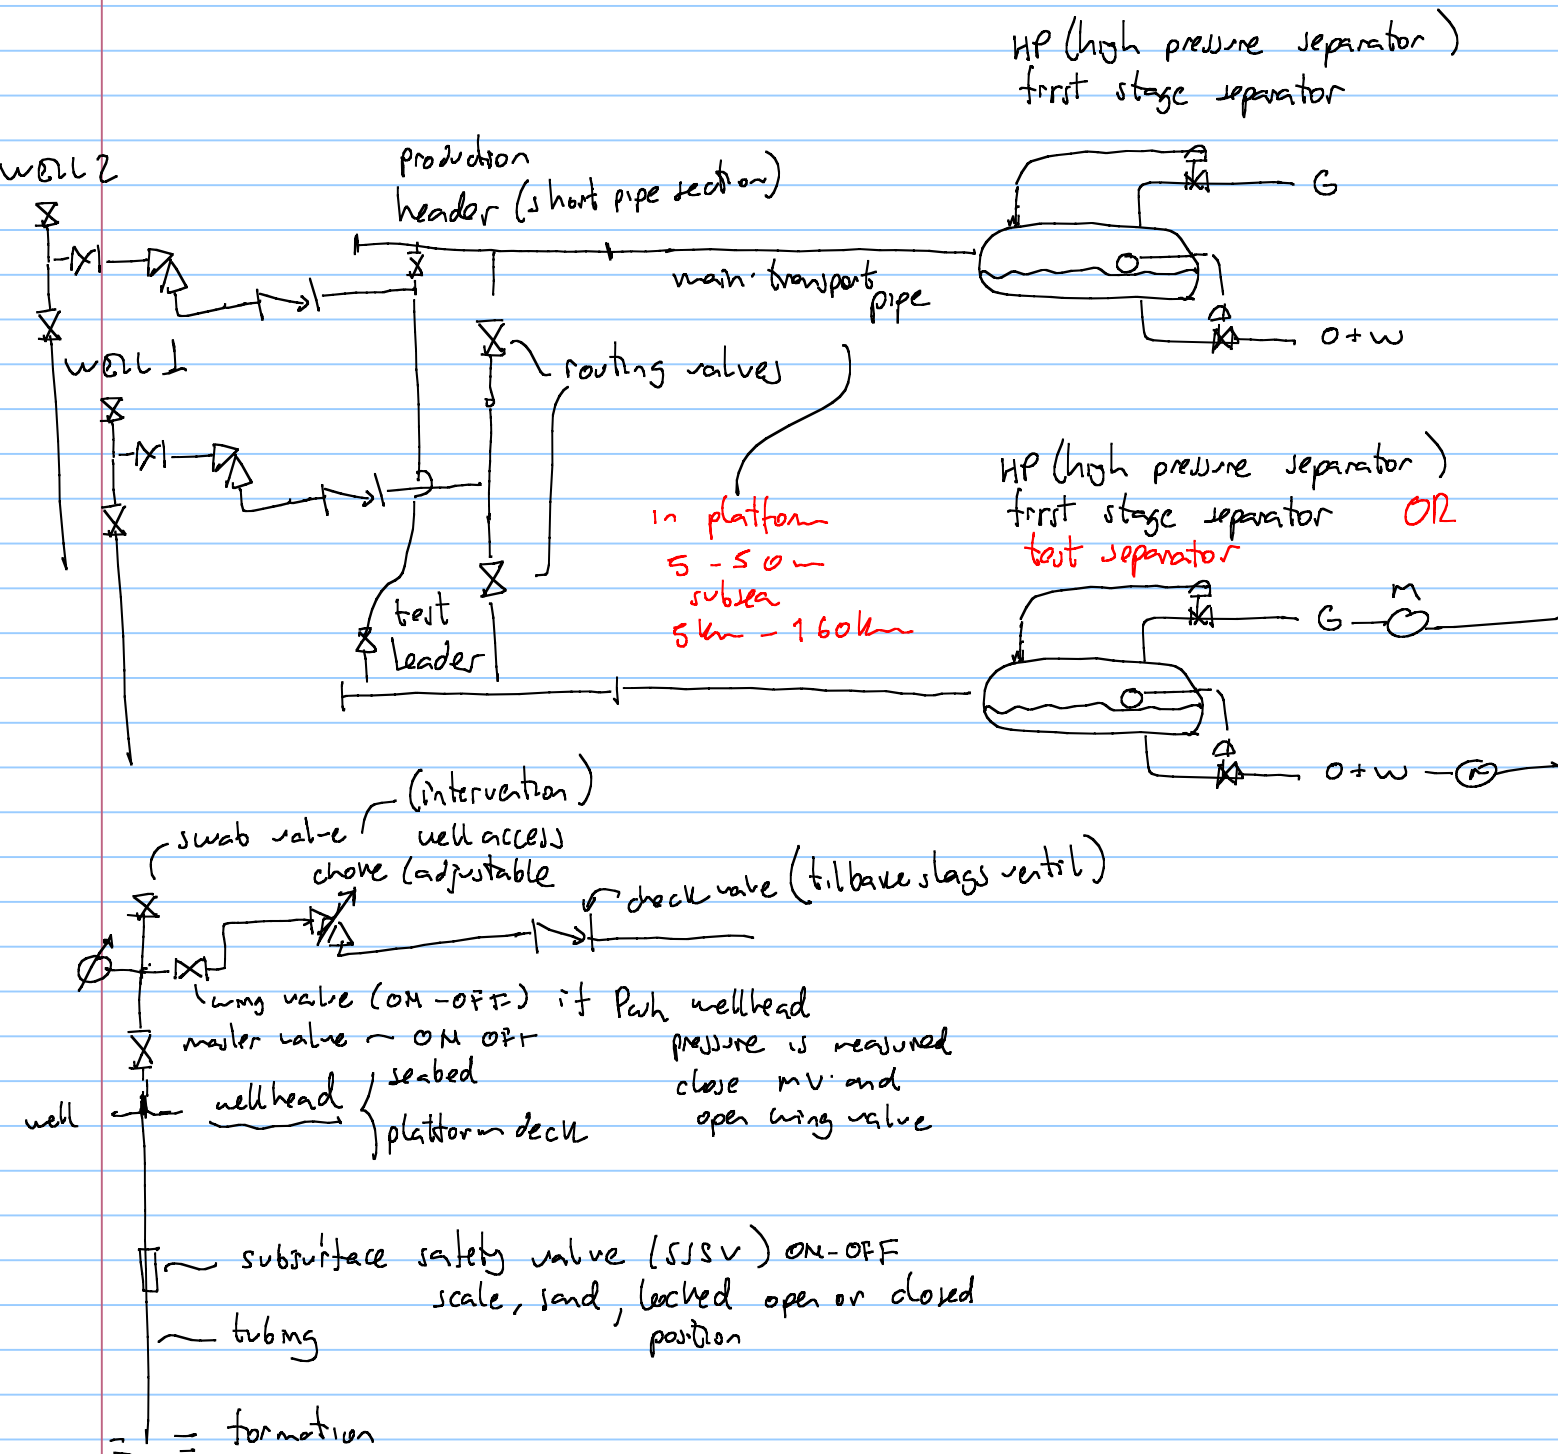 HP (high pressure separator)
first stage separator
WELL 2
production
header (short pipe section)
G
main transport
pipe
O+W
WELL 1
routing valves
HP (high pressure separator)
first stage separator OR
test separator
in platform
5 - 50 m
subsea
5km - 160km
test
header
G
M
O+W
M
(intervention)
swab valve
well access
choke (adjustable
check valve (tilbakeslags ventil)
wing valve (ON-OFF) if Pwh wellhead
master valve ~ ON OFF
pressure is measured
seabed
close mv. and
wellhead
well
open wing valve
platform deck
subsurface safety valve (SSSV) ON-OFF
scale, sand, locked open or closed
position
tubing
formation